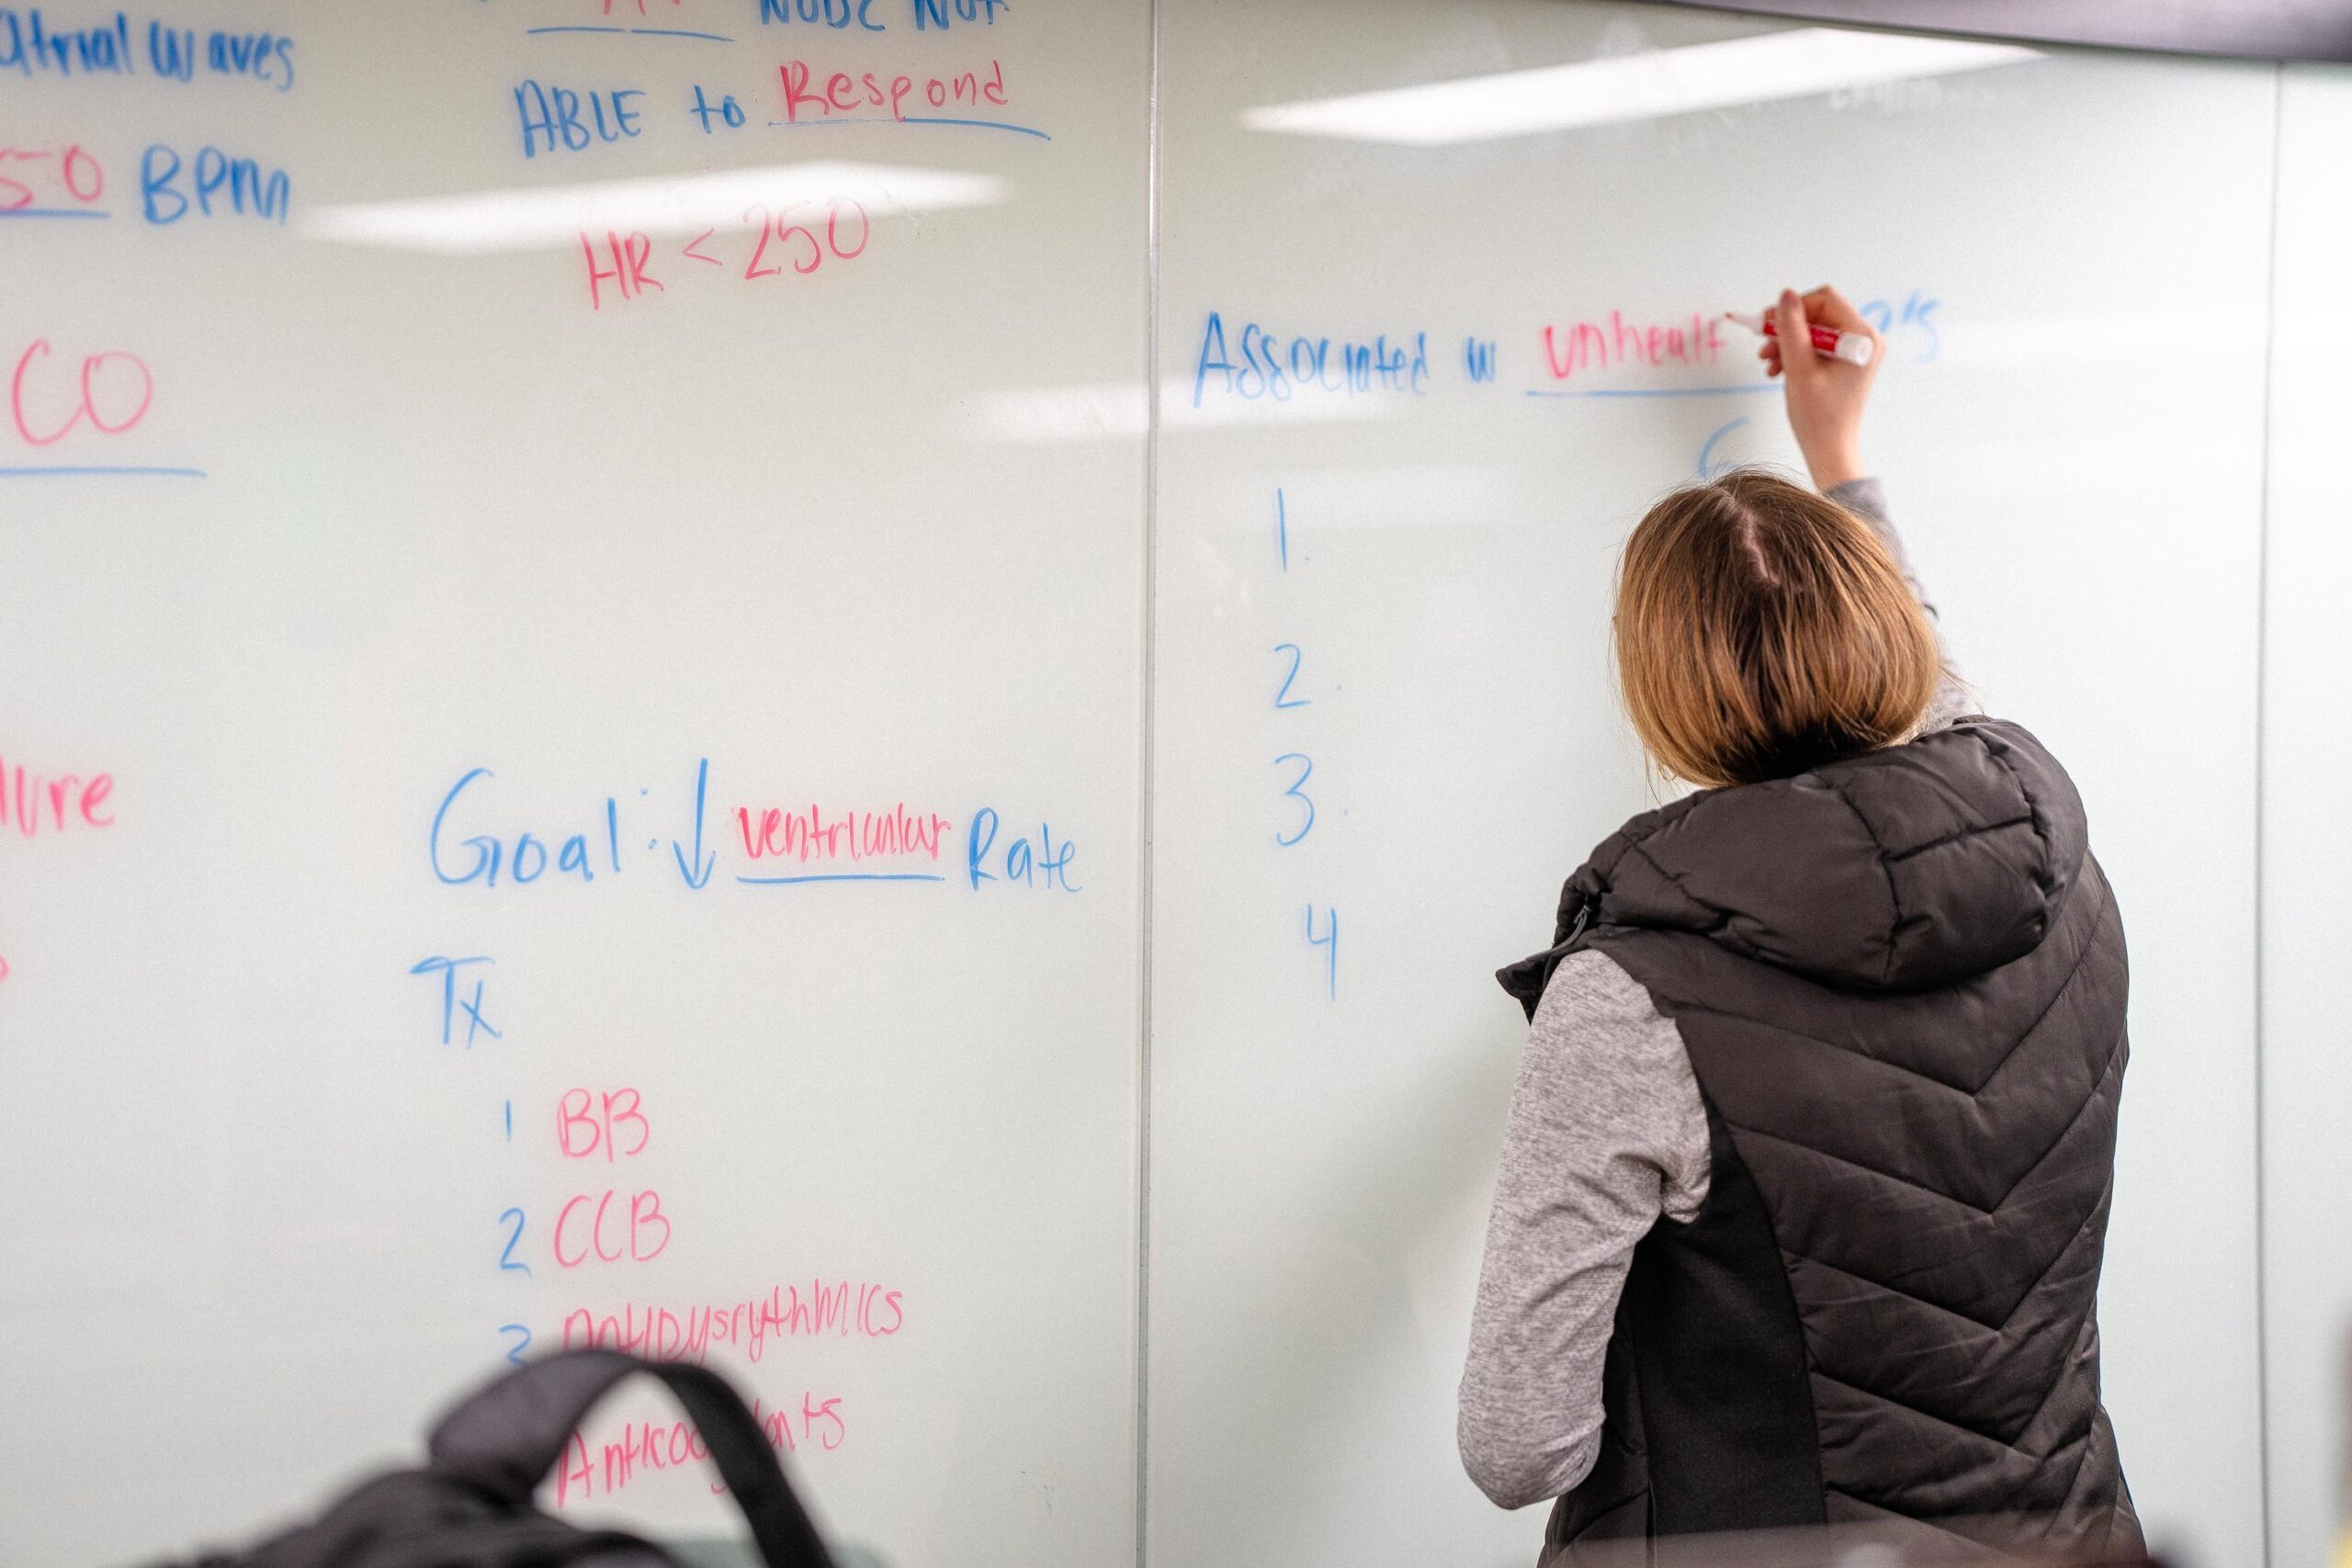 atrial waves
50 BPM
CO
lure
AV NODE NOT
ABLE to Respond
HR < 250
Goal: ↓ ventricular Rate
Tx
1 BB
2 CCB
3 AntiDysrythmics
Associated w unhealt
1.
2.
3.
4